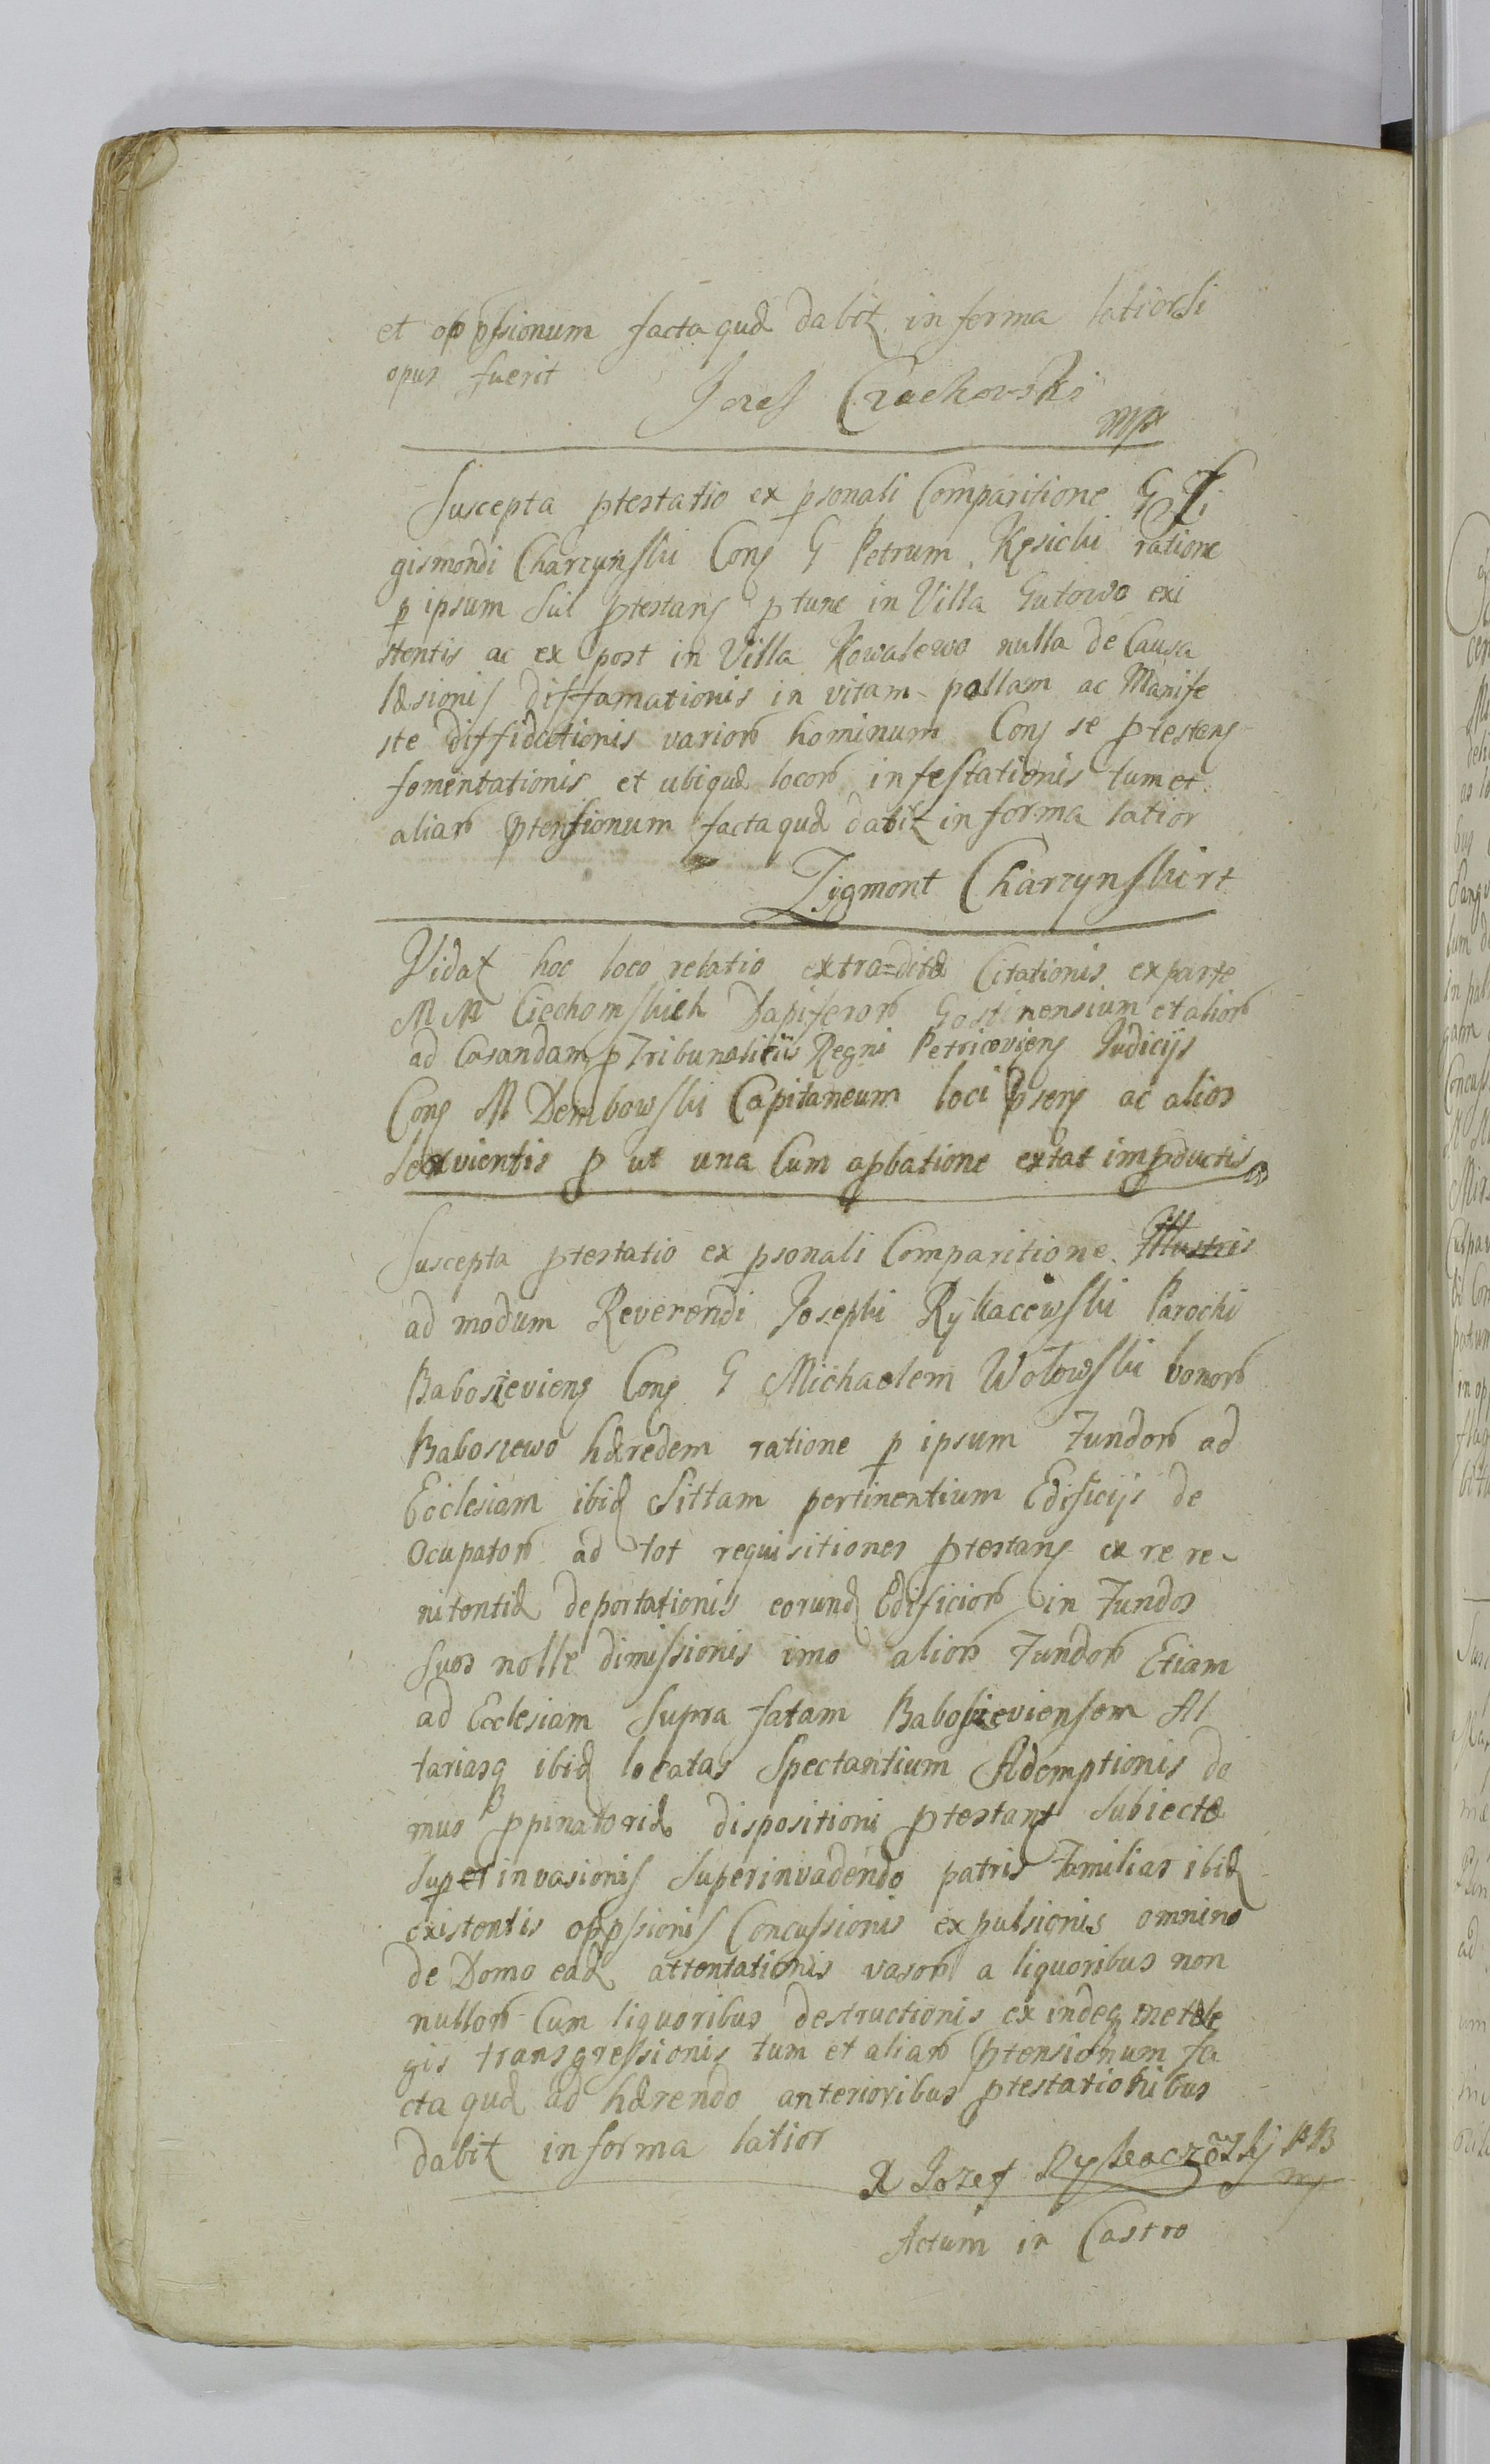 et oppssionum factaquæ dabit in forma latiori si
opus fuerit Jozef Czachorski
mp
Suscepta ptestatio ex psonali Comparitione G Zi
gismondi Charzynski Cong G Petrum Kęsicki ratione
p ipsum Sui ptestang p tunc in Villa Gutowo exi
stentis ac ex post in Villa Kowalewo nulla de Causa
læsionis diffamationis in vitam pallam ac Manife
ste diffidationis varior hominum Cong se ptestang
fomentationis et ubiquæ locor infestationis tum et
aliar ptensionum factaquæ dabit in forma latior
Zigmont Charzynski rt
Vidat hoc loco relatio extra=ditæ Citationis exparte
MM Ciechomskich Dapiferor Gostinensium et alior
ad Casandam p Tribunalitiis Regni Petricoviens Judicijs
Cong M Dembowski Capitaneum loci psens ac alios
Servientis p ut una Cum apbatione extat impductis
Suscepta ptestatio ex psonali Comparitione Illustris
ad modum Reverendi Josephi Rykacewski Parochi
Babosieviens Cong G Michaelem Wołowski bonor
Baboszewo hæredem ratione p ipsum Fundor ad
Ecclesiam ibid Sittam pertinentium Edificijs de
Ocupator ad tot requisitiones ptestans ex re re-
nitentiæ deportationis eorund Edificior in Fundos
Suos nolle dimissionis imo alior Fundor Etiam
ad Ecclesiam Supra fatam Babosieviensem Al
tariasq ibid locatas Spectantium Ademptionis do
mus ppinatoriæ dispositioni ptestant Subiectæ
Super invasionis Superinvadendo patris Familias ibid
existentis oppssionis Concussionis expulsionis omnino
de Domo ead attentationis vasor a liquoribus non
nullor Cum liquoribus destructionis ex indeq metæ le
gis transgressionis tum et aliar ptensionum fa
cta quæ ad hærendo anterioribus ptestationibus
dabit in forma latior
X Jozef Rykaczewskj PB
mp
Actum in Castro